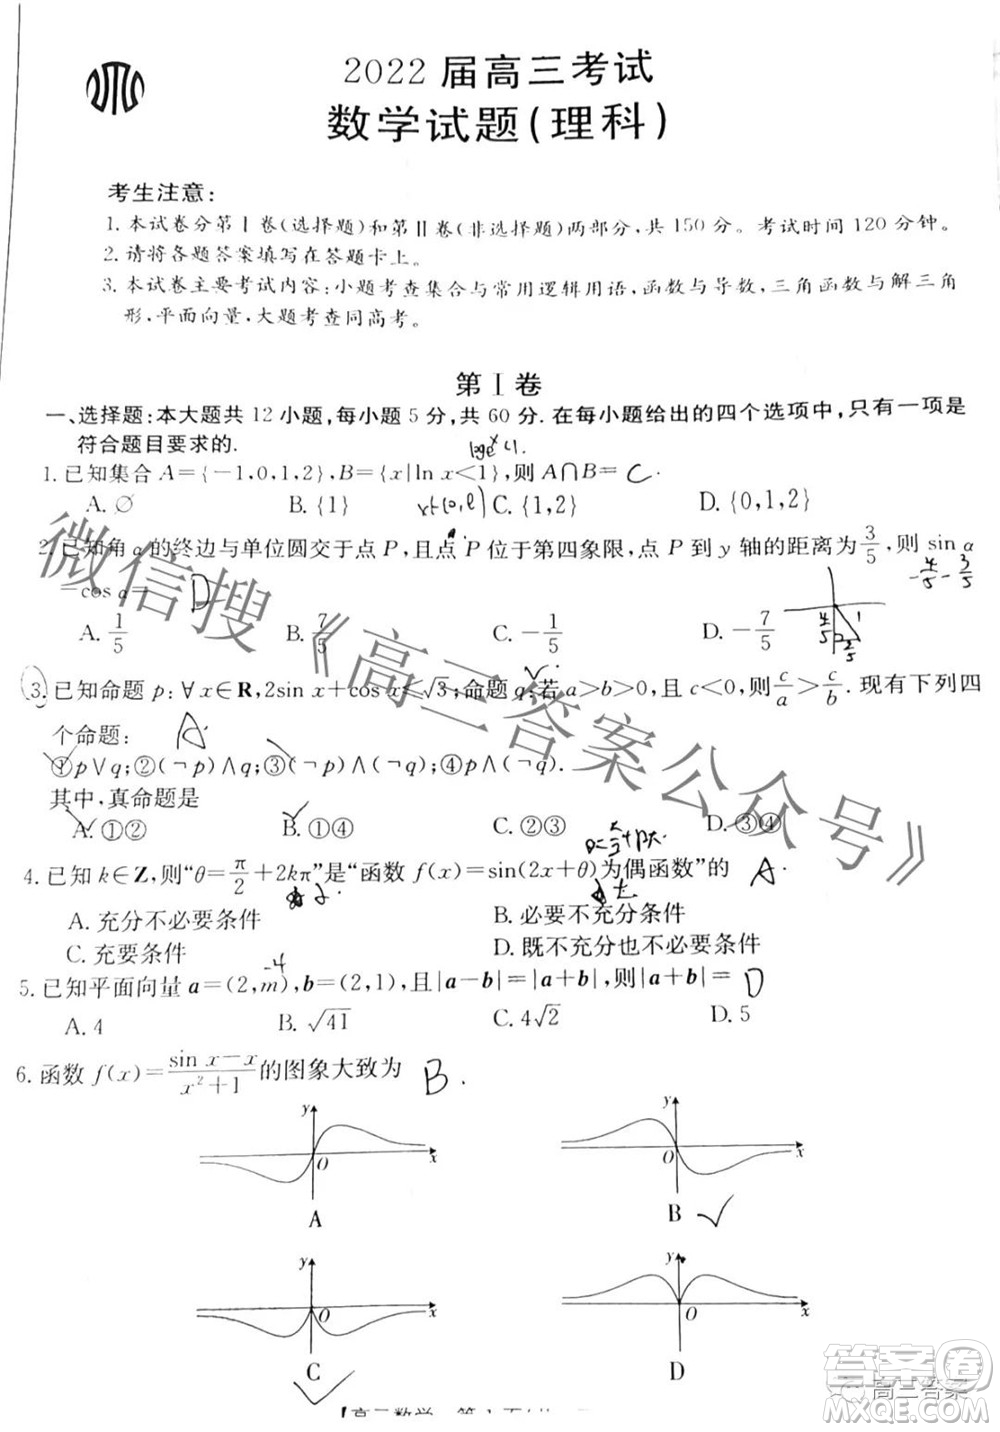 2022届高三考试
数学试题(理科)
考生注意:
1.本试卷分第Ⅰ卷(选择题)和第Ⅱ卷(非选择题)两部分,共150分。考试时间120分钟。
2.请将各题答案填写在答题卡上。
3.本试卷主要考试内容:小题考查集合与常用逻辑用语,函数与导数,三角函数与解三角
形,平面向量,大题考查同高考。
第Ⅰ卷
一、选择题:本大题共12小题,每小题5分,共60分.在每小题给出的四个选项中,只有一项是
符合题目要求的.
1.已知集合A={-1,0,1,2},B={x|ln x<1},则A∩B= C.
A.∅ B.{1} C.{1,2} D.{0,1,2}
2.已知角α的终边与单位圆交于点P,且点P位于第四象限,点P到y轴的距离为3/5,则sin α
-cos α= D
-4/5-3/5
A.1/5 B.7/5 C.-1/5 D.-7/5
3.已知命题p:∀x∈R,2sin x+cos x≤√3;命题q:若a>b>0,且c<0,则c/a>c/b.现有下列四
个命题: A.
①p∨q;②(¬p)∧q;③(¬p)∧(¬q);④p∧(¬q).
其中,真命题是
A.①② B.①④ C.②③ D.③④
4.已知k∈Z,则“θ=π/2+2kπ”是“函数f(x)=sin(2x+θ)为偶函数”的 A.
A.充分不必要条件 B.必要不充分条件
C.充要条件 D.既不充分也不必要条件
5.已知平面向量a=(2,m),b=(2,1),且|a-b|=|a+b|,则|a+b|= D
-4
A.4 B.√41 C.4√2 D.5
6.函数f(x)=(sin x-x)/(x²+1)的图象大致为 B.
y
O
x
A
y
O
x
B
y
O
x
C
y
O
x
D
微信搜《高三答案公众号》
答案卷
高三答案